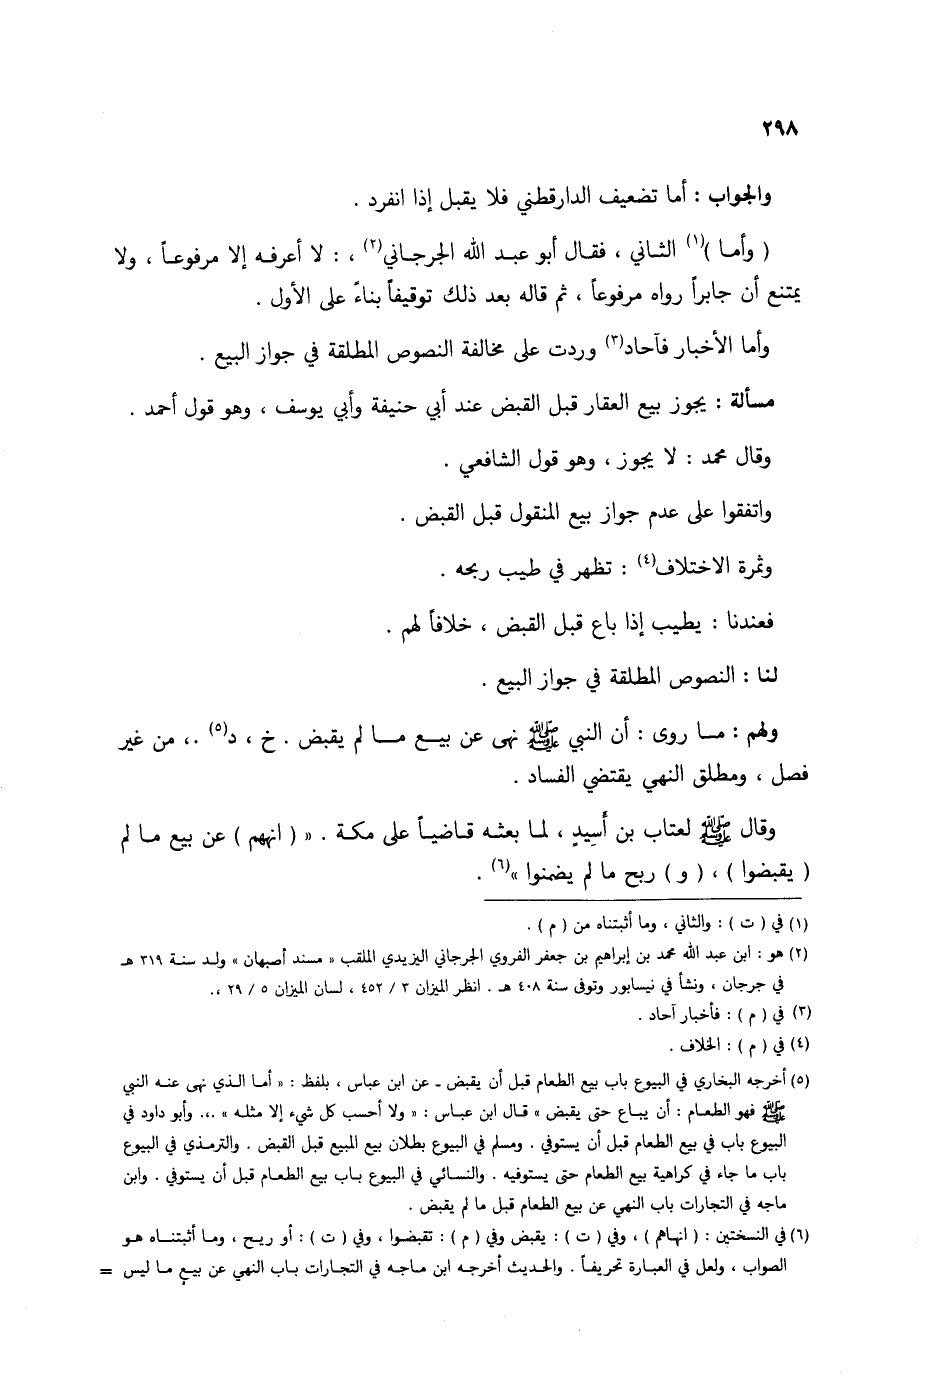 ٢٩٨
والجواب : أما تضعيف الدارقطني فلا يقبل إذا انفرد .
( وأمـا )(١) الثـاني ، فقـال أبو عبـد الله الجرجـاني(٢) ، : لا أعرفـه إلا مرفوعـاً ، ولا
يمتنع أن جابراً رواه مرفوعاً ، ثم قاله بعد ذلك توقيفاً بناءً على الأول .
وأما الأخبار فآحاد(٣) وردت على مخالفة النصوص المطلقة في جواز البيع .
مسألة : يجوز بيع العقار قبل القبض عند أبي حنيفة وأبي يوسف ، وهو قول أحمد .
وقال محمد : لا يجوز ، وهو قول الشافعي .
واتفقوا على عدم جواز بيع المنقول قبل القبض .
وثمرة الاختلاف(٤) : تظهر في طيب ربحه .
فعندنا : يطيب إذا باع قبل القبض ، خلافاً لهم .
لنا : النصوص المطلقة في جواز البيع .
ولهم : مـا روى : أن النبي ﷺ نهى عن بيـع مـا لم يقبض . خ ، د(٥) .، من غير
فصل ، ومطلق النهي يقتضي الفساد .
وقال ﷺ لعتاب بن أَسِيدٍ ، لما بعثـه قـاضيـاً على مكـة . « ( انههم ) عن بيع مـا لم
( يقبضوا ) ، ( و ) ربح ما لم يضمنوا »(٦) .
(١) في ( ت ) : والثاني ، وما أثبتناه من ( م ) .
(٢) هو : ابن عبد الله محمد بن إبراهيم بن جعفر الفروي الجرجاني اليزيدي الملقب « مسند أصبهان » ولـد سنـة ٣١٩ هـ
في جرجان ، ونشأ في نيسابور وتوفى سنة ٤٠٨ هـ . انظر الميزان ٣ / ٤٥٢ ، لسان الميزان ٥ / ٢٩ .،
(٣) في ( م ) : فأخبار آحاد .
(٤) في ( م ) : الخلاف .
(٥) أخرجه البخاري في البيوع باب بيع الطعام قبل أن يقبض ـ عن ابن عباس ، بلفظ : « أمـا الـذي نهى عنـه النبي
ﷺ فهو الطعـام : أن يبـاع حتى يقبض » قـال ابن عبـاس : « ولا أحسب كل شيء إلا مثلـه » .،. وأبو داود في
البيوع باب في بيع الطعام قبل أن يستوفي . ومسلم في البيوع بطلان بيع المبيع قبل القبض . والترمـذي في البيوع
باب ما جاء في كراهية بيع الطعام حتى يستوفيه . والنسائي في البيوع بـاب بيع الطعـام قبل أن يستوفي . وابن
ماجه في التجارات باب النهي عن بيع الطعام قبل ما لم يقبض .
(٦) في النسختين : ( انهـاهم ) ، وفي ( ت ) : يقبض وفي ( م ) : تقبضـوا ، وفي ( ت ) : أو ربـح ، ومـا أثبتنـاه هـو
الصواب ، ولعل في العبـارة تحريفـاً . والحـديث أخرجـه ابن مـاجـه في التجارات بـاب النهي عن بيـع مـا ليس =